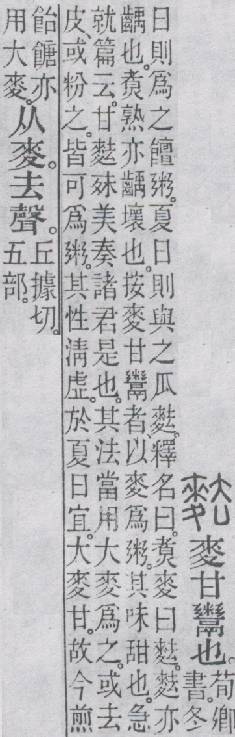 麮 麥甘鬻也。荀卿
書。冬
日則爲之饘粥。夏日則與之瓜麮。釋名曰。煑麥曰麮。麮亦
齲也。煑熟亦齲壞也。按麥甘鬻者、以麥爲粥。其味甜也。急
就篇云。甘麮殊美奏諸君是也。其法當用大麥爲之。或去
皮、或粉之。皆可爲粥。其性淸虛。於夏日宜。大麥甘。故今煎
飴餹亦
用大麥。
从麥。去聲。
丘據切。
五部。